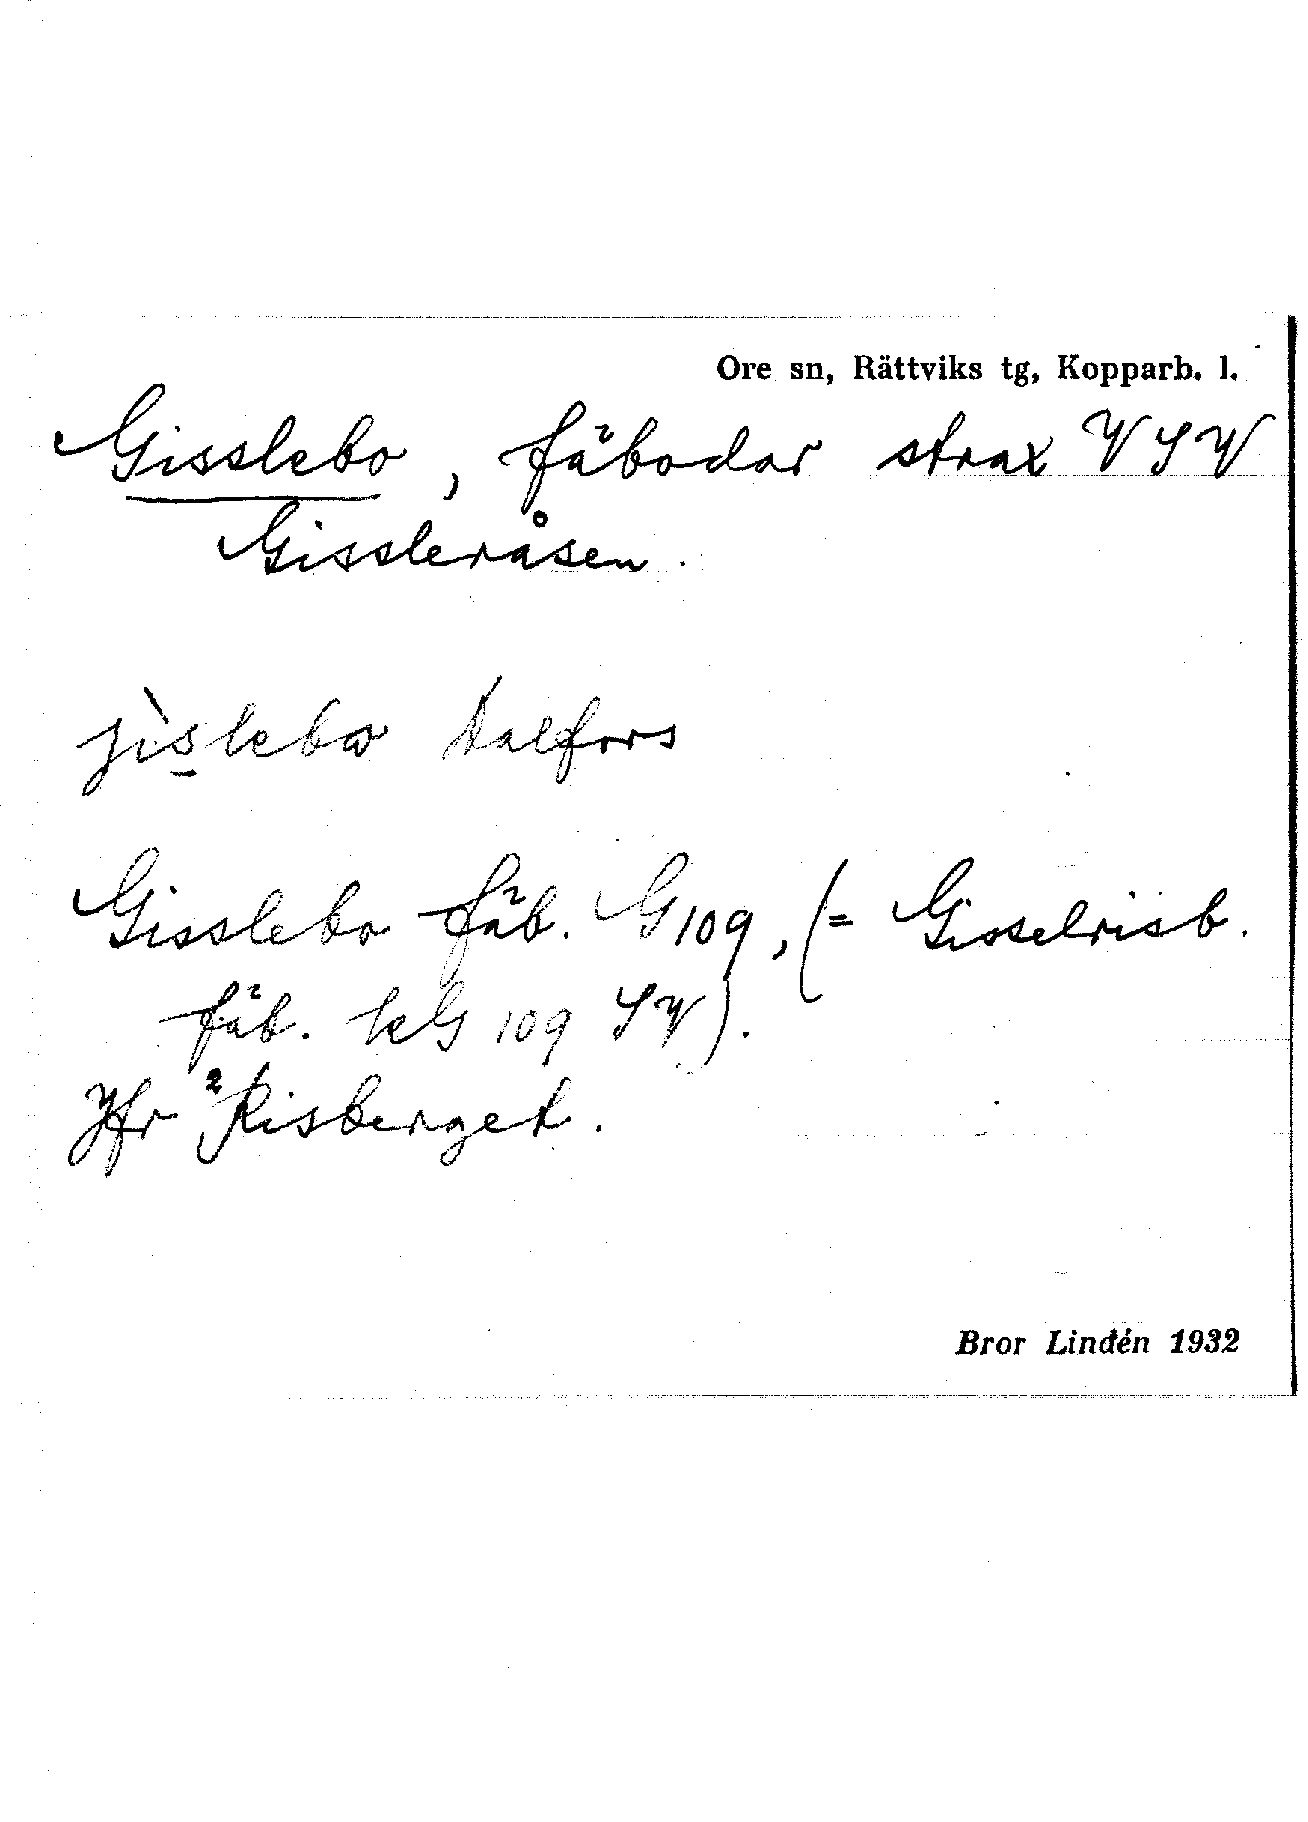 Ore sn, Rättviks tg, Kopparb. l.
Gisslebo, fäbodar strax VSV
Gissleråsen.
jìslebω Dalfors
Gisslebo fäb. G109, (= Gisselrisb.
fäb. kG 109 SV).
Jfr ²Risberget.
Bror Lindén 1932